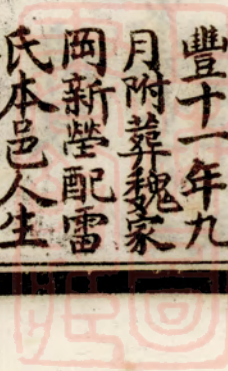 豐十一年九
月附葬魏家
岡新塋配雷
氏本邑人生